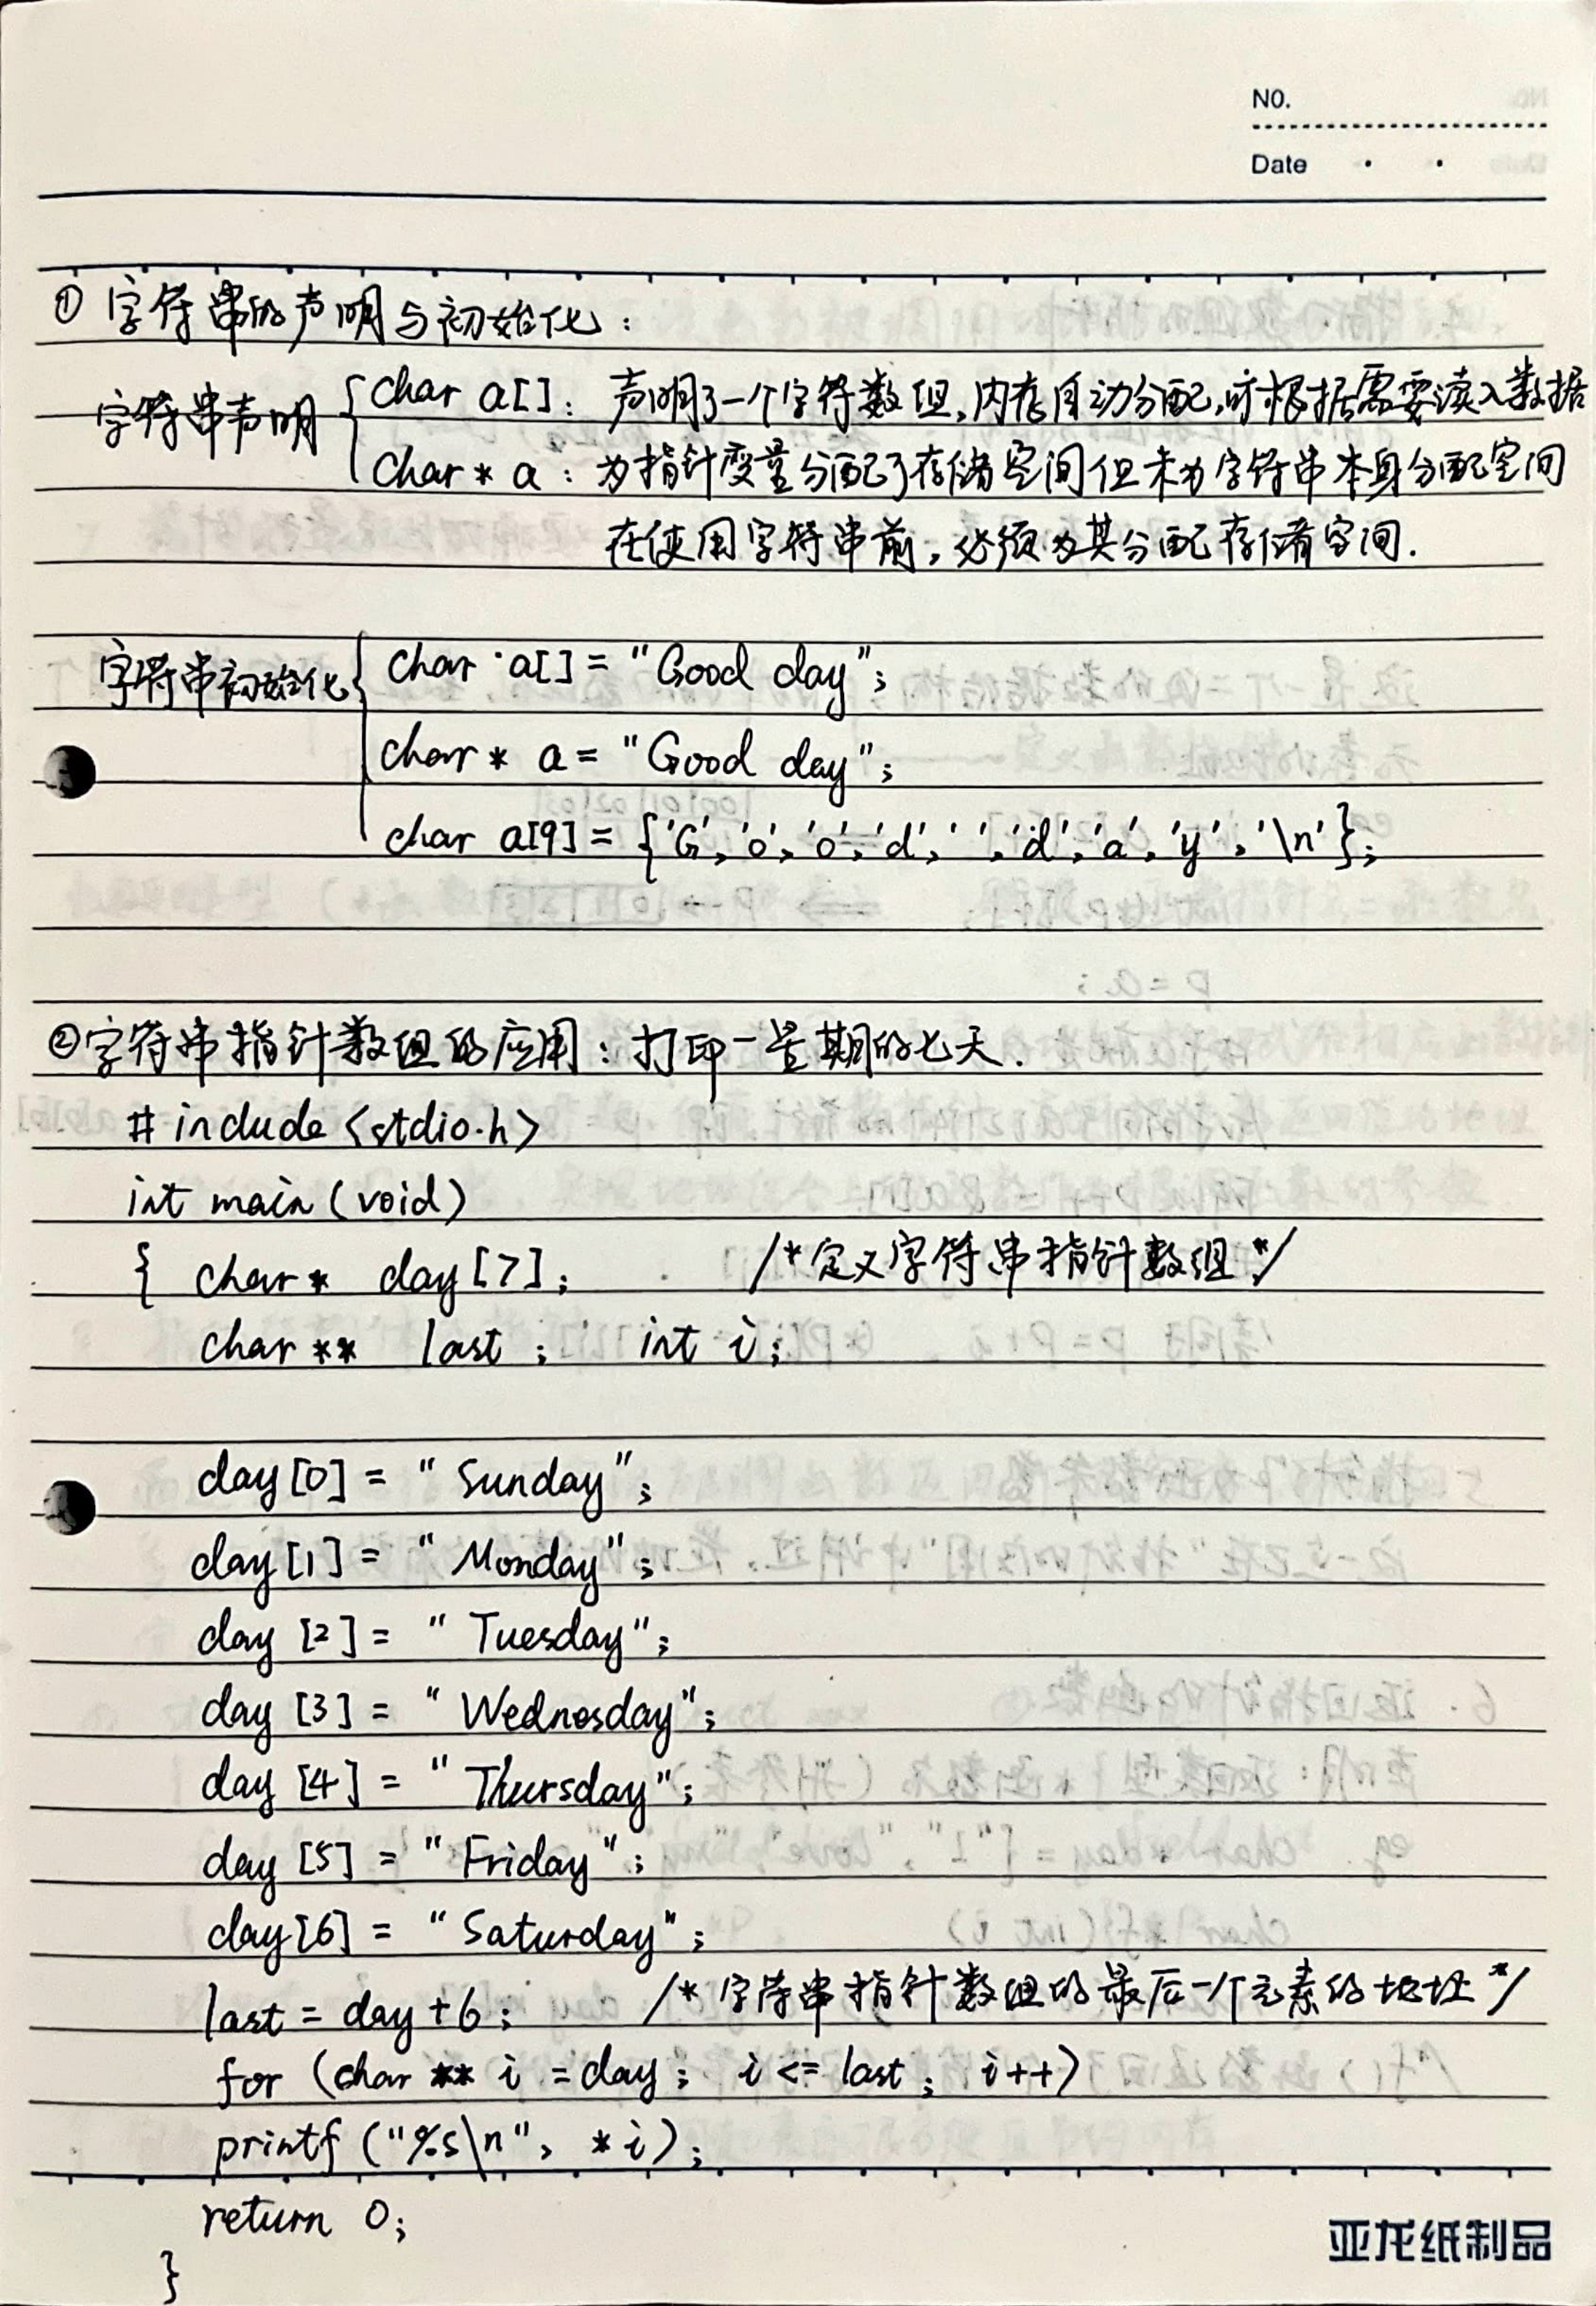 NO.
Date
① 字符串的声明与初始化：
字符串声明 { char a[]：声明了一个字符数组，内存自动分配，可根据需要读入数据
char * a：为指针变量分配了存储空间但未为字符串本身分配空间
在使用字符串前，必须为其分配存储空间.
字符串初始化 { char a[] = "Good day";
char * a = "Good day";
char a[9] = {'G', 'o', 'o', 'd', ' ', 'd', 'a', 'y', '\n'};
②字符串指针数组的应用：打印一星期的七天.
# include <stdio.h>
int main (void)
{ char * day [7]; /*定义字符串指针数组*/
char ** last ; int i;
day [0] = "Sunday";
day [1] = "Monday";
day [2] = "Tuesday";
day [3] = "Wednesday";
day [4] = "Thursday";
day [5] = "Friday";
day [6] = "Saturday";
last = day + 6; /* 字符串指针数组的最后一个元素的地址 */
for (char ** i = day; i <= last; i++)
printf ("%s\n", *i);
return 0;
}
亚龙纸制品